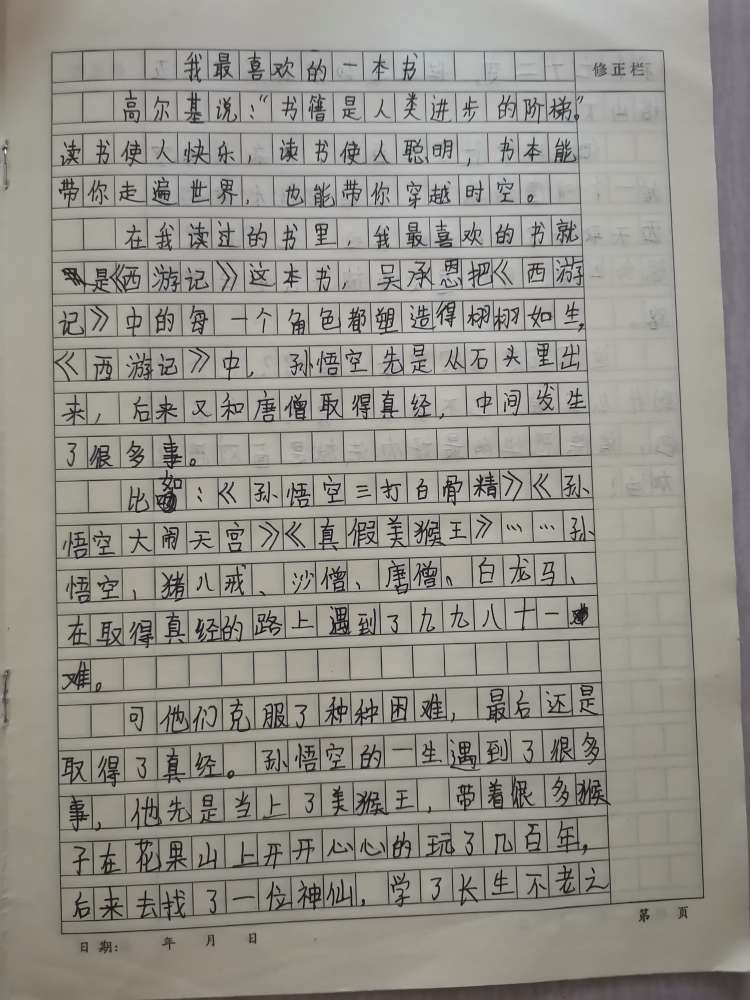 我最喜欢的一本书
修正栏
高尔基说:“书籍是人类进步的阶梯。”
读书使人快乐，读书使人聪明，书本能
带你走遍世界，也能带你穿越时空。
在我读过的书里，我最喜欢的书就
是《西游记》这本书，吴承恩把《西游
记》中的每一个角色都塑造得栩栩如生，
《西游记》中，孙悟空先是从石头里出
来，后来又和唐僧取得真经，中间发生
了很多事。
比如：《孙悟空三打白骨精》《孙
悟空大闹天宫》《真假美猴王》……孙
悟空、猪八戒、沙僧、唐僧、白龙马、
在取得真经的路上遇到了九九八十一
难。
可他们克服了种种困难，最后还是
取得了真经。孙悟空的一生遇到了很多
事，他先是当上了美猴王，带着很多猴
子在花果山上开开心心的玩了几百年，
后来去找了一位神仙，学了长生不老之
第 页
日期: 年 月 日